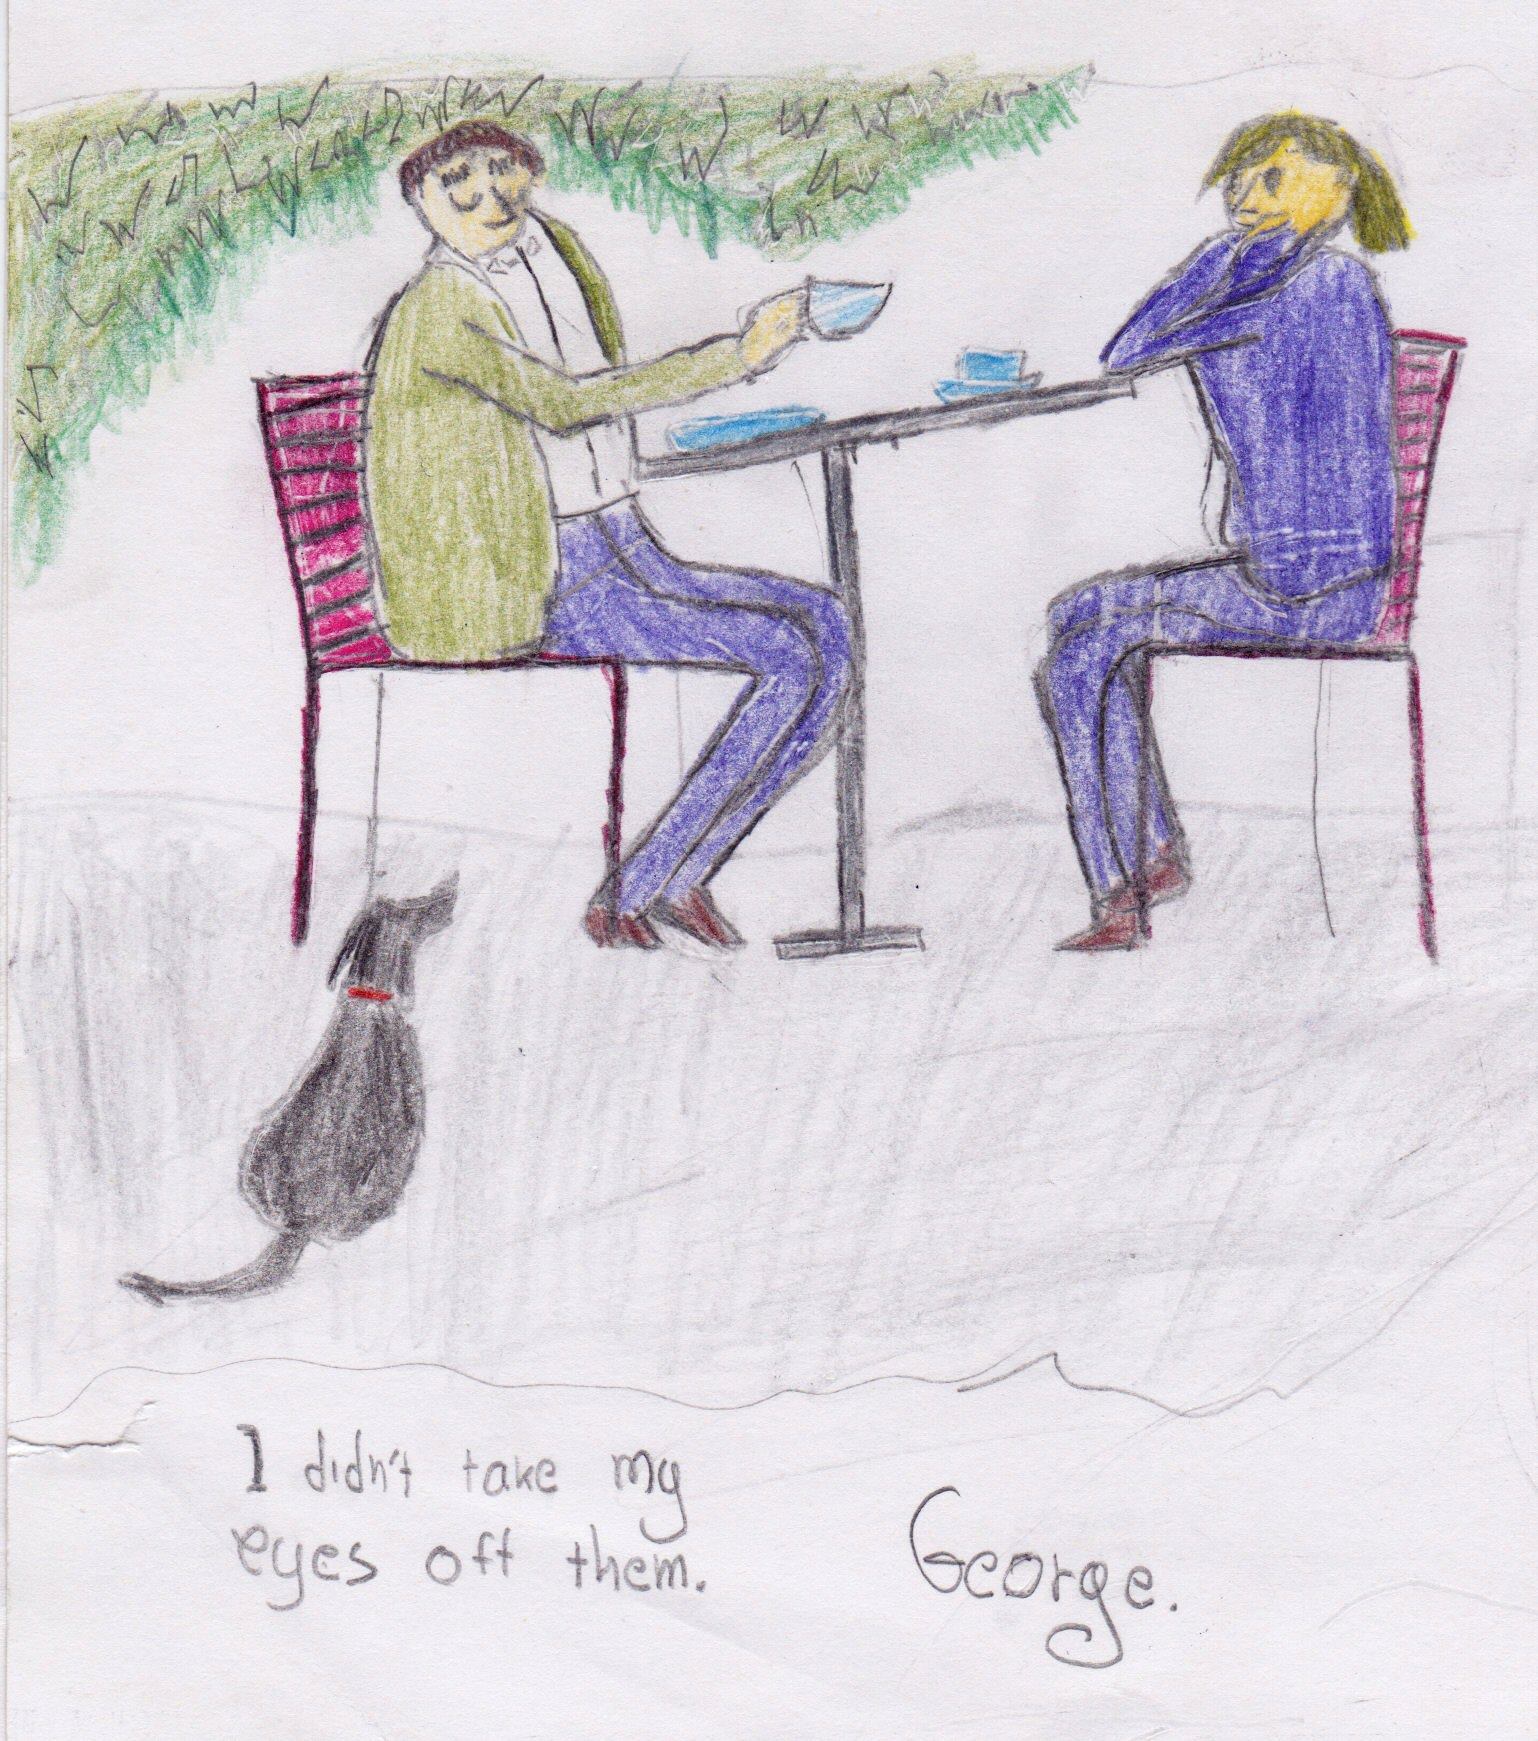 I didn't take my
eyes off them.
George.